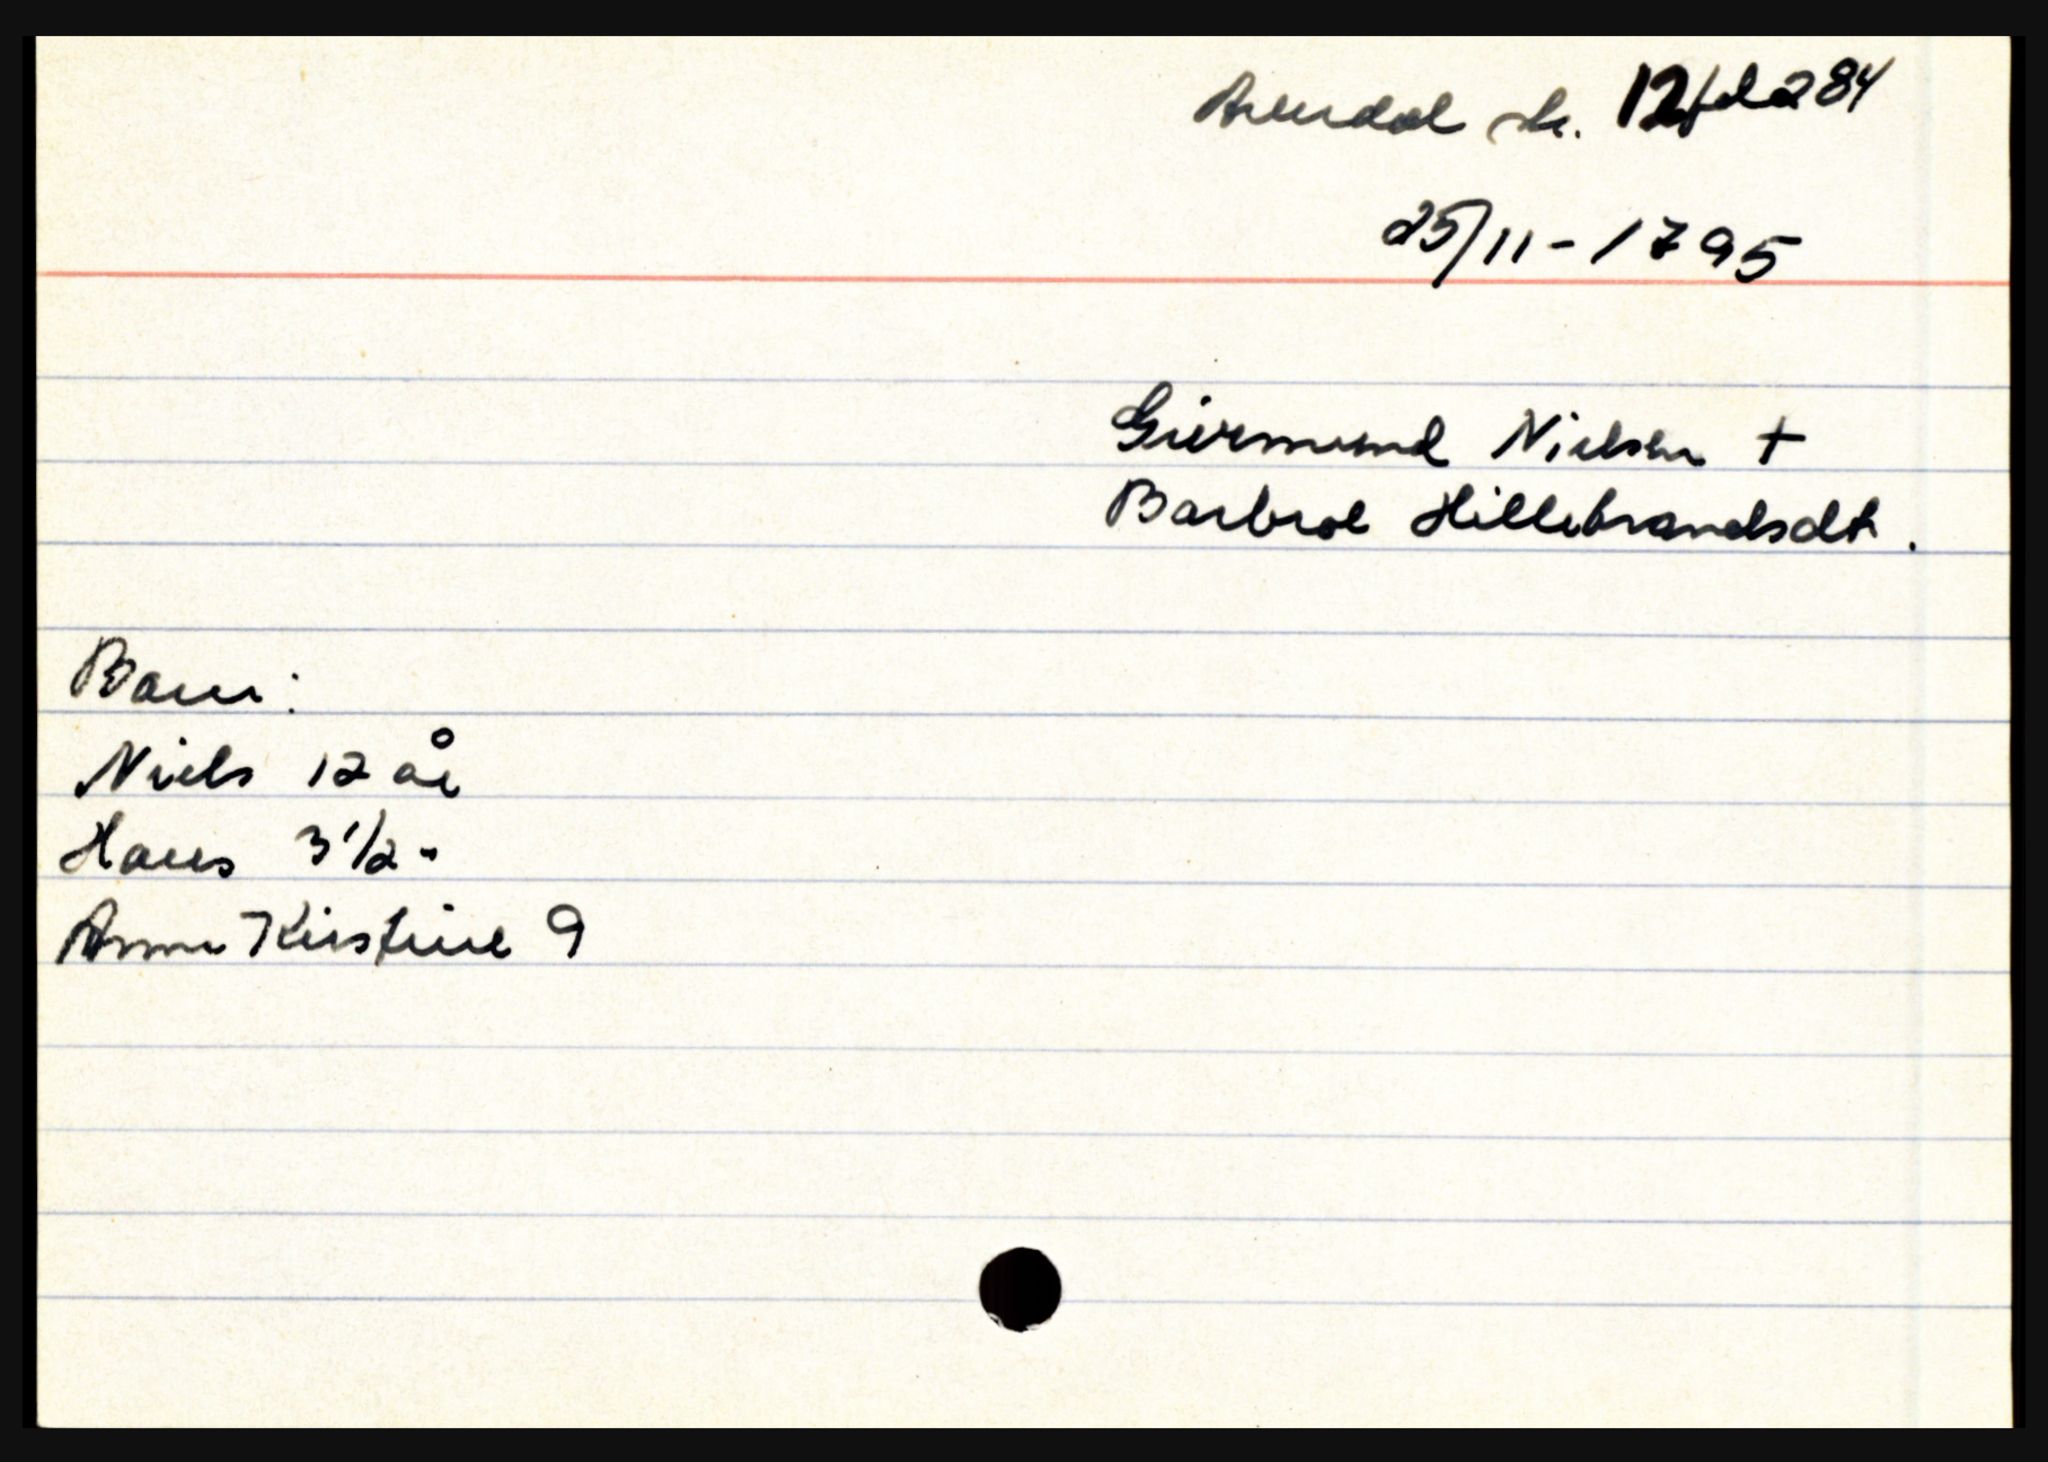 Arendal sk. 12 fol 284
25/11-1795
Giermund Nielsen +
Barbroe Hillebrandsdt.
Barn:
Niels 12 år
Hans 3 1/2 "
Anne Kirstine 9